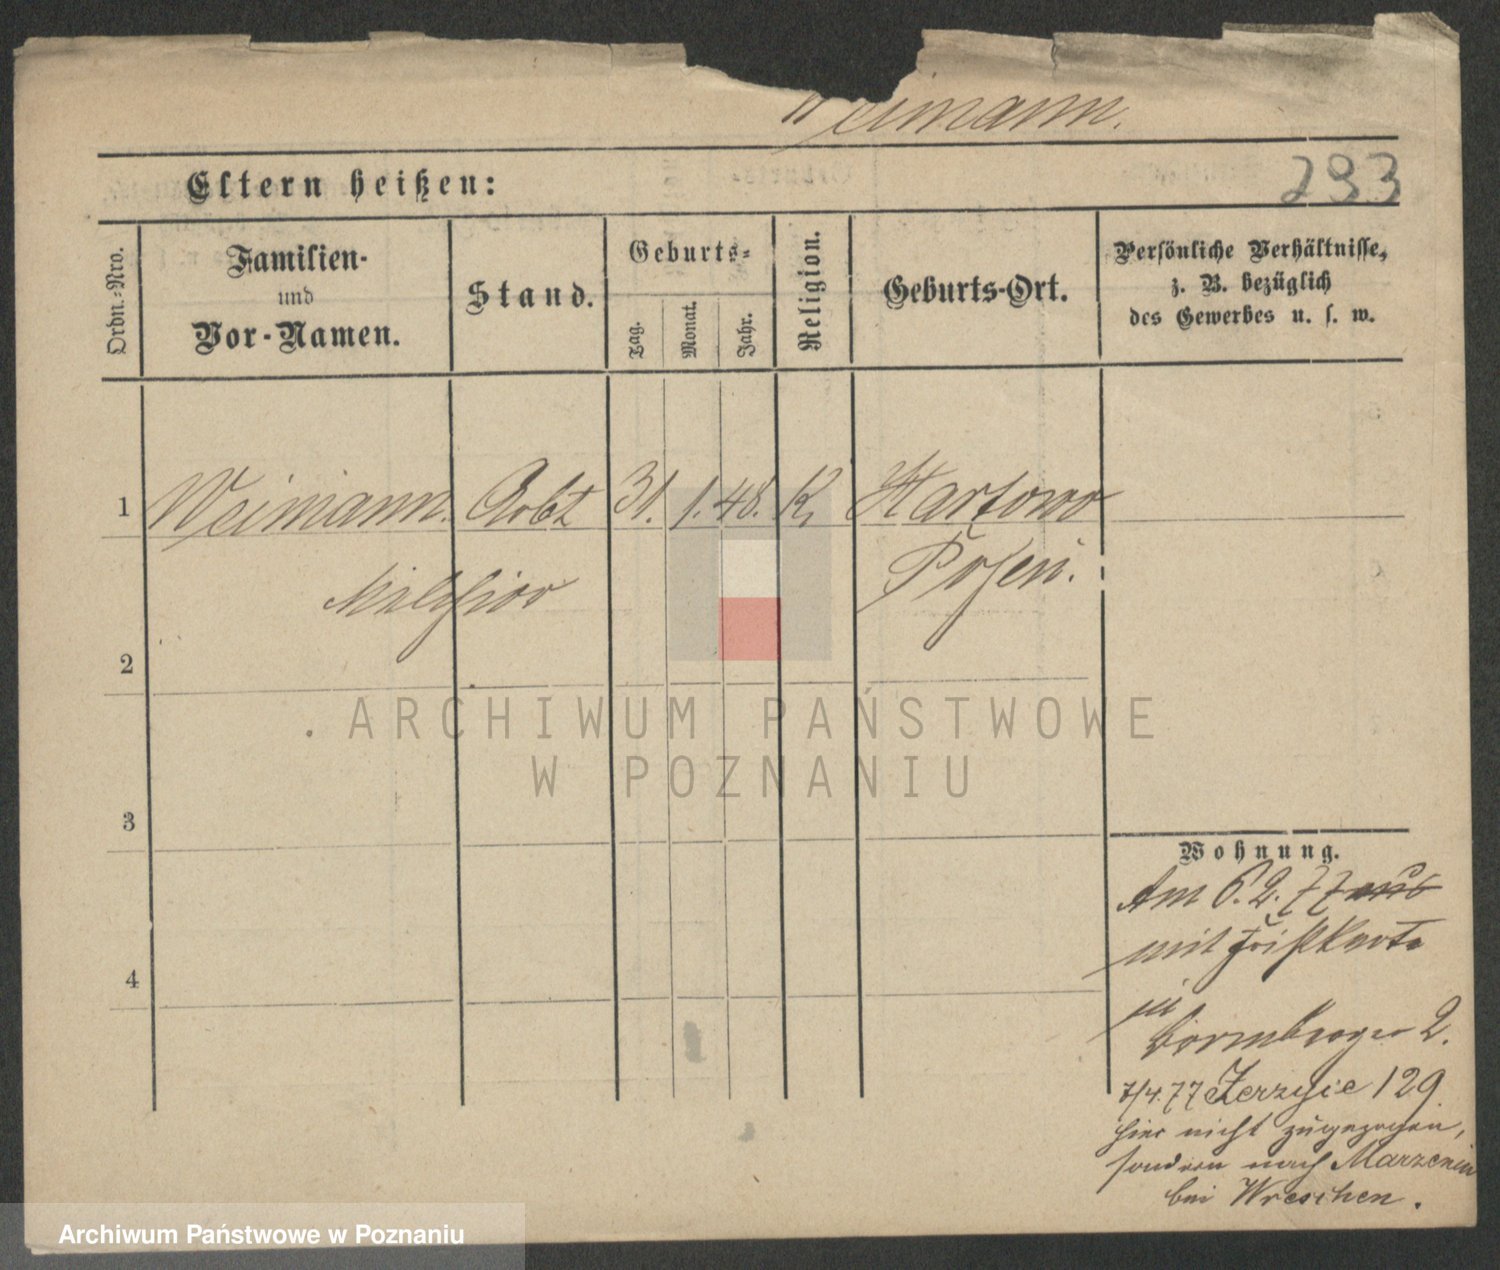 Weimann.
Eltern heißen:
293
Ordn.-Nro.
Familien-
und
Vor-Namen.
Stand.
Geburts-
Tag.
Monat.
Jahr.
Religion.
Geburts-Ort.
Persönliche Verhältnisse,
z. B. bezüglich
des Gewerbes u. s. w.
1 Weimann. Arbt 31. 1. 48. K. Hartowo
Melchior Posen.
2
3
4
ARCHIWUM PAŃSTWOWE
W POZNANIU
Wohnung.
Am 6. 2. 77 aus
mit Fristkarte
in
Bromberger 2.
7/4. 77 Jerzyce 129.
hier nicht zugezogen,
sondern nach Marzenin
bei Wreschen.
Archiwum Państwowe w Poznaniu